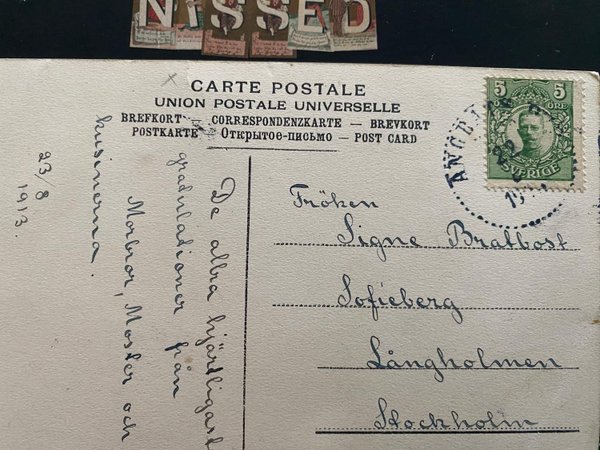 NISSED
CARTE POSTALE
UNION POSTALE UNIVERSELLE
BREFKORT – CORRESPONDENZKARTE – BREVKORT
POSTKARTE – Открытое-письмо – POST CARD
De allra hjärtligast
gradulationer från
Morbror, Moster och
kusinerna.
23/8
1913.
5 5
ÖRE
SVERIGE
Fröken
Signe Bratbost
Sofieberg
Långholmen
Stockholm